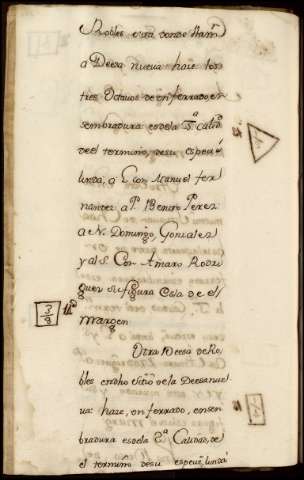 Robles otra donde llam.n
a Deesa nueva haze los
tres Octavos de un ferrado, en
sembradura es de la 3.a Calid.
de el termino, de su espeuz.
linda, a L. con Manuel fer
nandez a P. Benito Perez
a N. Domingo Gonzalez
y al S. Con Amaro Rodri
guez su figura es la de el
margen
3
8
Otra Deesa de Ro-
bles en dho sitio de la Deesa nue
va: haze, un ferrado, en sem
bradura es de la 2.a Calidad, de
el termino de su espeuz, linda